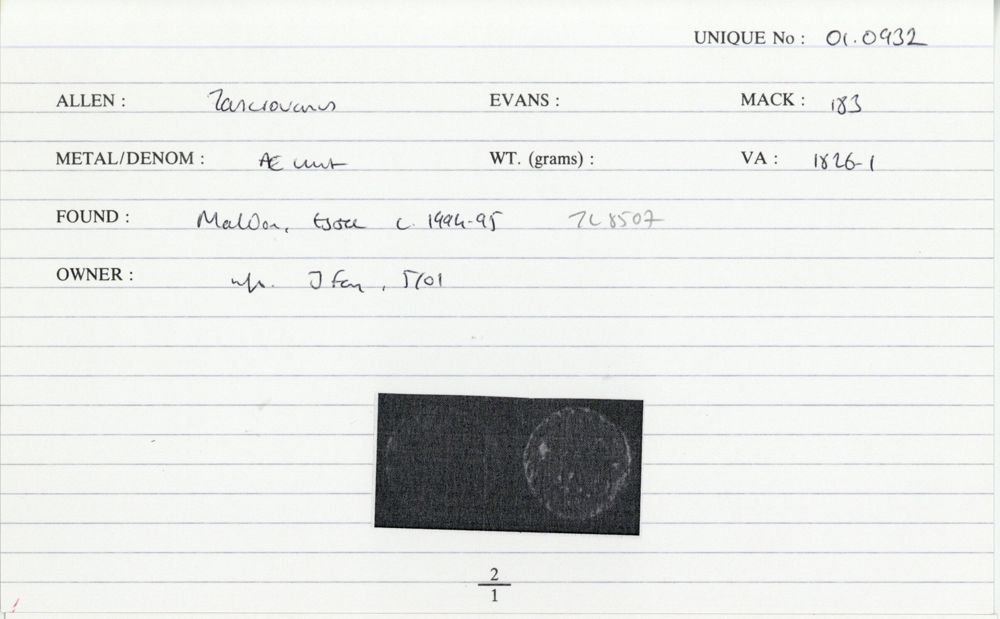 UNIQUE No : 01.0932
ALLEN : Tasciovanus EVANS : MACK : 183
METAL/DENOM : Æ unit WT. (grams) : VA : 1826-1
FOUND : Maldon, Essex c. 1994-95 TL 8507
OWNER : J 5/01
2
1